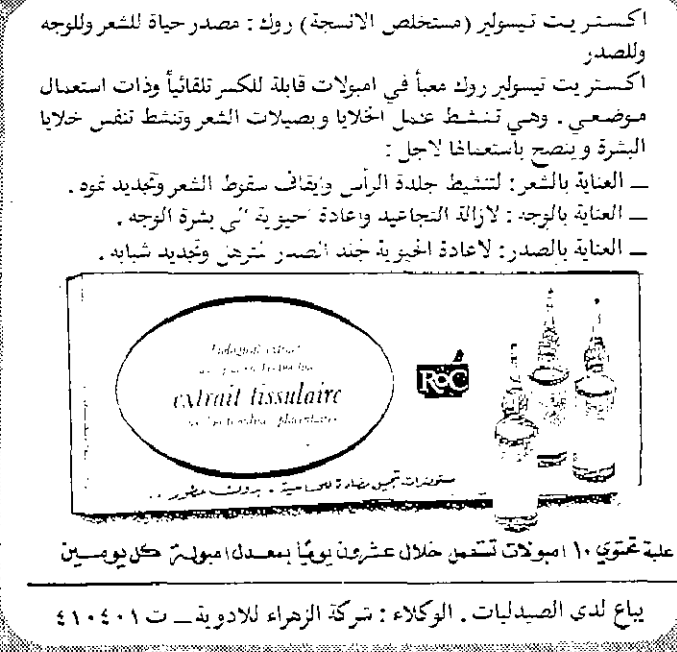 اكستريت تيسولير (مستخلص الانسجة) روك : مصدر حياة للشعر وللوجه
وللصدر
اكستريت تيسولير روك معبأ في امبولات قابلة للكسر تلقائياً وذات استعمال
موضعي . وهي تنشط عمل الخلايا وبصيلات الشعر وتنشط تنفس خلايا
البشرة وينصح باستعمالها لاجل :
ــ العناية بالشعر : لتنشيط جلدة الرأس وإيقاف سقوط الشعر وتجديد نموه .
ــ العناية بالوجه : لازالة التجاعيد واعادة الحيوية الى بشرة الوجه .
ــ العناية بالصدر : لاعادة الحيوية لجلد الصدر المترهل وتجديد شبابه .
extrait tissulaire
RoC
مستحضرات تجميل مضادة للحساسية . بدون عطور ..
علبة تحتوي ١٠ امبولات تستعمل خلال عشرون يومًا بمعدل امبولة كل يومين
يباع لدى الصيدليات . الوكلاء : شركة الزهراء للادوية ــ ت ٤١٠٤٠١